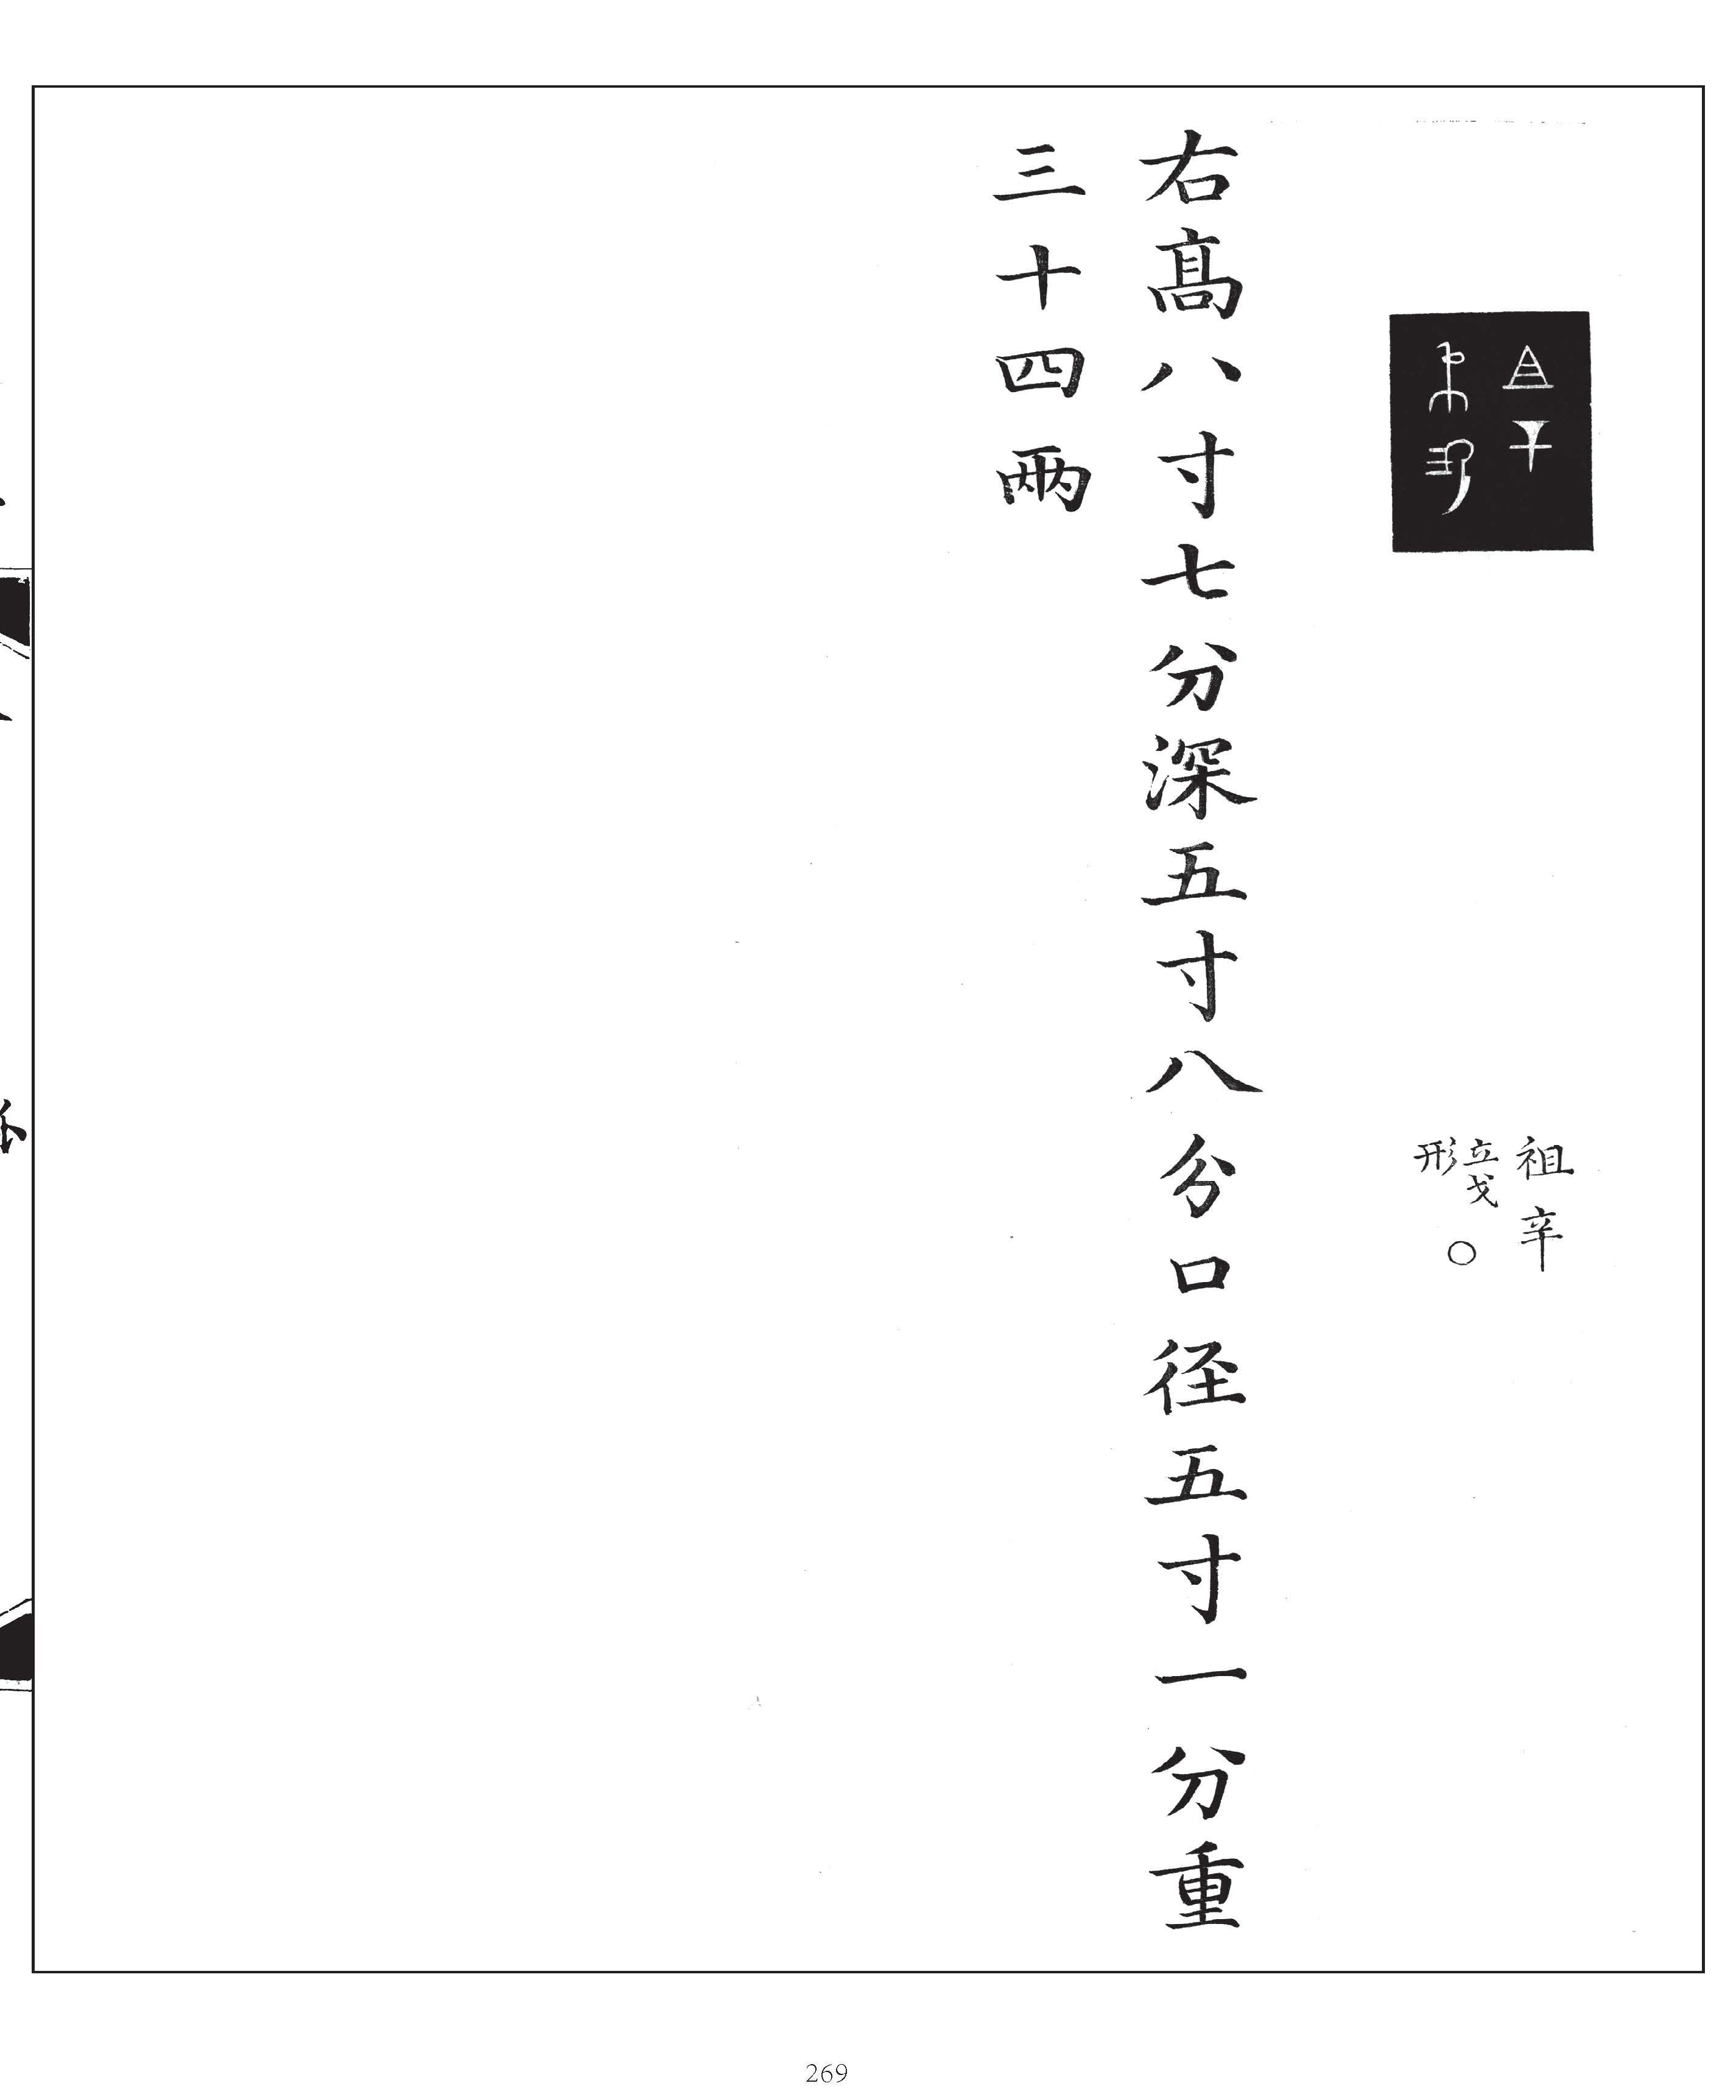 祖辛
立戈
形
○
右高八寸七分深五寸八分口径五寸一分重
三十四兩
269